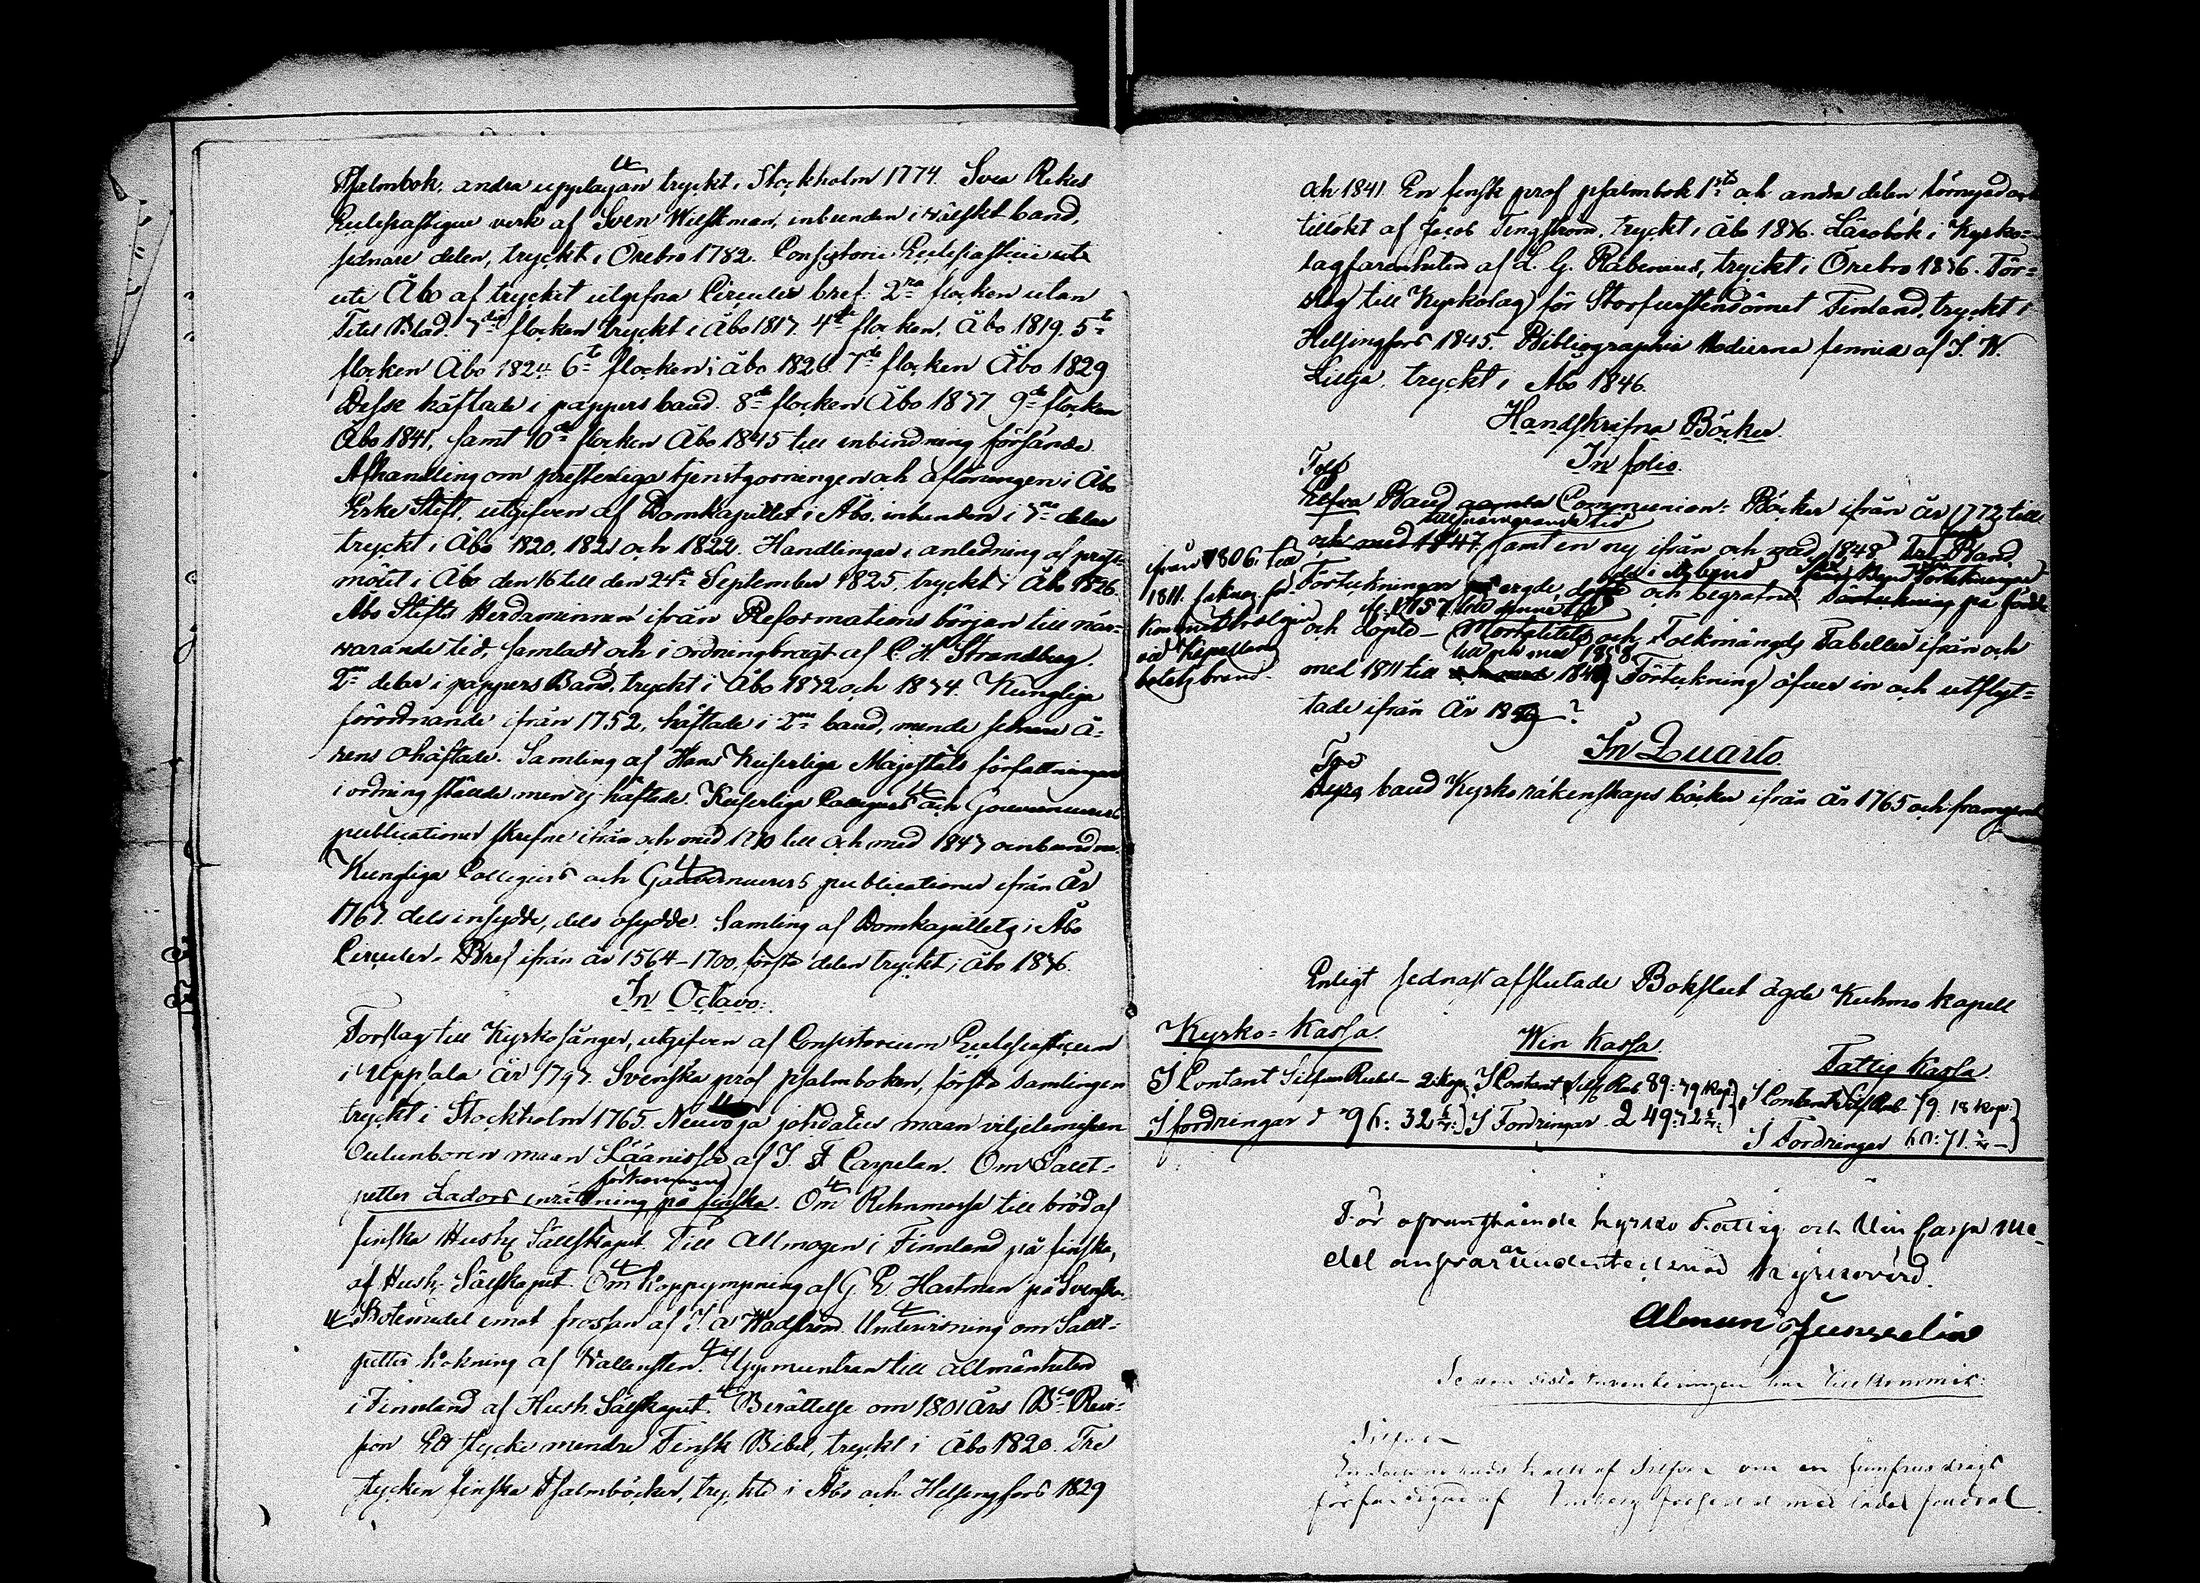 Psalmbok, andra upplagan tryckt i Stockholm 1774. Svea Rikes
Ecclesiastique verk af Sven Wilskman, inbunden i wälskt band,
sednare delen, tryckt i Örebro 1782. Consistorii Ecclesiastici
uti Åbo af trycket utgifna Circulär bref. 2ra flocken utan
Titel Blad. 3dje flocken tryckt i Åbo 1817. 4de flocken, Åbo 1819. 5te
flocken Åbo 1824. 6te flocken i Åbo 1826. 7de flocken Åbo 1829
Desse häftade i pappers band. 8de flocken Åbo 1837 9de flocken
Åbo 1841, samt 10de flocken Åbo 1845 till inbindning försände.
Afhandling om presterliga tjenstgörningen och aflöningen i Åbo
Erke Stift, utgifven af Domkapitlet i Åbo, inbunden i 3ne delar
tryckt i Åbo 1820, 1821 och 1822. Handlingar i anledning af prest-
mötet i Åbo den 16 till den 24de September 1825, tryckt i Åbo 1826.
Åbo Stifts Herdaminnen ifrån Reformations början till när-
warande tid, samladt och i ordning bragt af C. H. Strandberg.
2ne delar i pappers Band, tryckt i Åbo 1832 och 1834. Kungliga
förordnande ifrån 1752, häftade i 2ne band, men de sednare å-
rens ohäftade. Samling af Hans Keiserliga Majestäts författningar
i ordning stälde men ej häftade. Keiserliga Collegiers och Gouverneurers
publicationer skrefne ifrån och med 1810 till och med 1847 oinbundne.
Kungliga Collegiers och Gouverneurers publicationer ifrån År
1767. dels insydde, dels osydde. Samling af Domkapitlets i Åbo
Circulär-Bref ifrån år 1564-1700, första delen tryckt i Åbo 1836.
In Octavo.
Förslag till Kyrkosånger, utgifven af Consistorium Ecclesiasticum
i Uppsala år 1793. Svenska prof psalmboken, första samlingen
tryckt i Stockholm 1765. Neuvoja johdatus maan viljelemisen
Oulunboren maan Läänissä af J. F. Carpelan. Om Salt-
förkommen
petter Ladors inrättning på finska. Om Rehnmossa till bröd af
finska Hush. Sällskapet. Till Allmogen i Finnland på finska,
af Hush. Sälskapet. Om Koppympning af G. E. Hartman på Svenska.
Botemedel emot frossan af J. A. Wadström. Underwisning om Salt-
petter kokning af Wallensten. Uppmuntran till allmänheten
i Finnland af Hush. Sälskapet. Berättelse om 1801 Års Revi-
sion Ett stycke mendre Finsk Bibel, tryckt i Åbo 1820. Tre
stycken finska Psalmböcker, tryckte i Åbo och Helsingfors 1829
och 1841. En finsk prof psalmbok 1sta och andra delen,
tillökt af Jacob Tengström, tryckt i Åbo 1836. Lärobok i Kyrko-
lagfarenheten af L. G. Rabenius, tryckt i Örebro 1836. För-
slag till Kyrkolag för Storfurstendömet Finland, tryckt i
Helsingfors 1845. Bibliographia Hodierna fennica af J. W.
Lillja, tryckt i Åbo 1846.
Handskrifna Böcker.
In folio.
Tolf
Elfva Band gamla Communion-Böcker ifrån år 1772 till
närvarande tid
och med 1847. samt en ny ifrån och med 1848. Tre Band
från 1806. till
1811. saknas
vid Kapellens
Förteckningar och begrafne Förteckning på födde
och döpte - Mortalitets och Folkmängds Tabeller ifrån och
till och med 1858
med 1811 till Förteckning öfver in och utflyt-
tade ifrån År
In Quarto.
Tre
Fyra band Kyrko räkenskaps böcker ifrån år 1765 och framgent
Enligt sednast afslutade Bokslut ägde Kuhmo kapell
Kyrko-Kassa. Win Kassa. Fattig Kassa.
I Contant Silfver Rubel - 2 kop. I Contant Silf. Rub. 89:79 kop. I Contant Silf. Rub. 18 kop.
I fordringar 96:32 I Fordringar 249:
I Fordringar 60:71.
För ofvanstående kyrko Fattig och Vin Cassa me-
del ansvarar undertecknad kyrkovärd.
Silfver
af Silfver